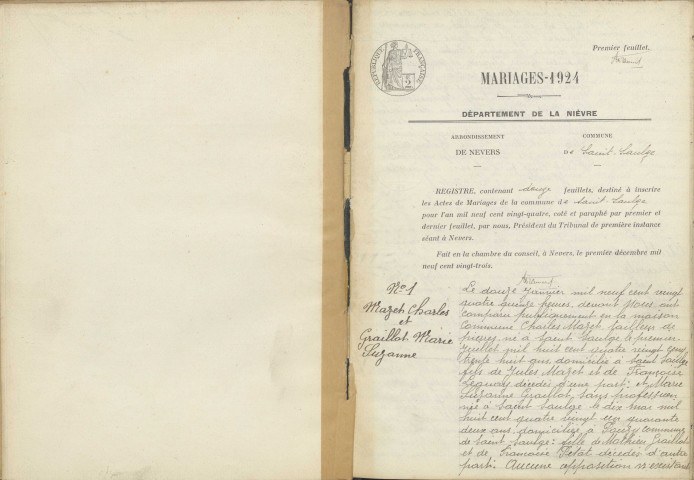 RÉPUBLIQUE FRANÇAISE
2
Premier feuillet,
MARIAGES-1924
DÉPARTEMENT DE LA NIÈVRE
ARRONDISSEMENT
DE NEVERS
COMMUNE
de Saint-Saulge
REGISTRE, contenant douze feuillets, destiné à inscrire
les Actes de Mariages de la commune de Saint-Saulge
pour l'an mil neuf cent vingt-quatre, coté et paraphé par premier et
dernier feuillet, par nous, Président du Tribunal de première instance
séant à Nevers.
Fait en la chambre du conseil, à Nevers, le premier décembre mil
neuf cent vingt-trois.
N° 1
Mazet Charles
et
Graillot Marie
Suzanne
Le douze Janvier mil neuf cent vingt
quatre quinze heures, devant Nous ont
comparu publiquement en la maison
Commune Charles Mazet tailleur de
pierres né à Saint Saulge le premier
Juillet mil huit cent quatre vingt cinq
trente huit ans domicilié à Saint Saulge
fils de Jules Mazet et de Françoise
décédés d'une part; et Marie
Suzanne Graillot, sans profession
née à Saint Saulge le dix mai mil
huit cent quatre vingt un quarante
deux ans domiciliée à commune
de Saint Saulge; fille de Mathieu Graillot
et de Françoise décédés d'autre
part. Aucune opposition n'existant